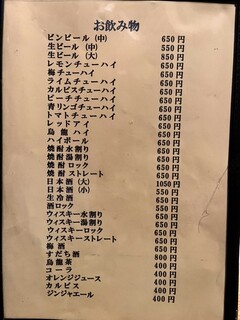 お飲み物
ビンビール (中) 650円
生ビール (中) 550円
生ビール (大) 850円
レモンチューハイ 650円
梅チューハイ 650円
ライムチューハイ 650円
カルピスチューハイ 650円
ピーチチューハイ 650円
青リンゴチューハイ 650円
トマトチューハイ 650円
レッドアイ 650円
烏龍ハイ 650円
ハイボール 650円
焼酎水割り 650円
焼酎湯割り 650円
焼酎ロック 650円
焼酎ストレート 650円
日本酒 (大) 1050円
日本酒 (小) 550円
生冷酒
酒ロック 650円
ウィスキー水割り 650円
ウィスキー湯割り 650円
ウィスキーロック 650円
ウィスキーストレート 650円
梅酒 650円
すだち酒 800円
烏龍茶 400円
コーラ 400円
オレンジジュース 400円
カルピス 400円
ジンジャエール 400円